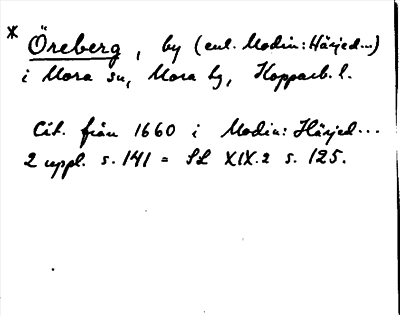 * Öreberg, by (enl. Modin: Härjed...)
i Mora sn, Mora tg, Kopparb. l.
Cit. från 1660 i Modin: Härjed...
2 uppl. s. 141 = SL XIX.2 s. 125.